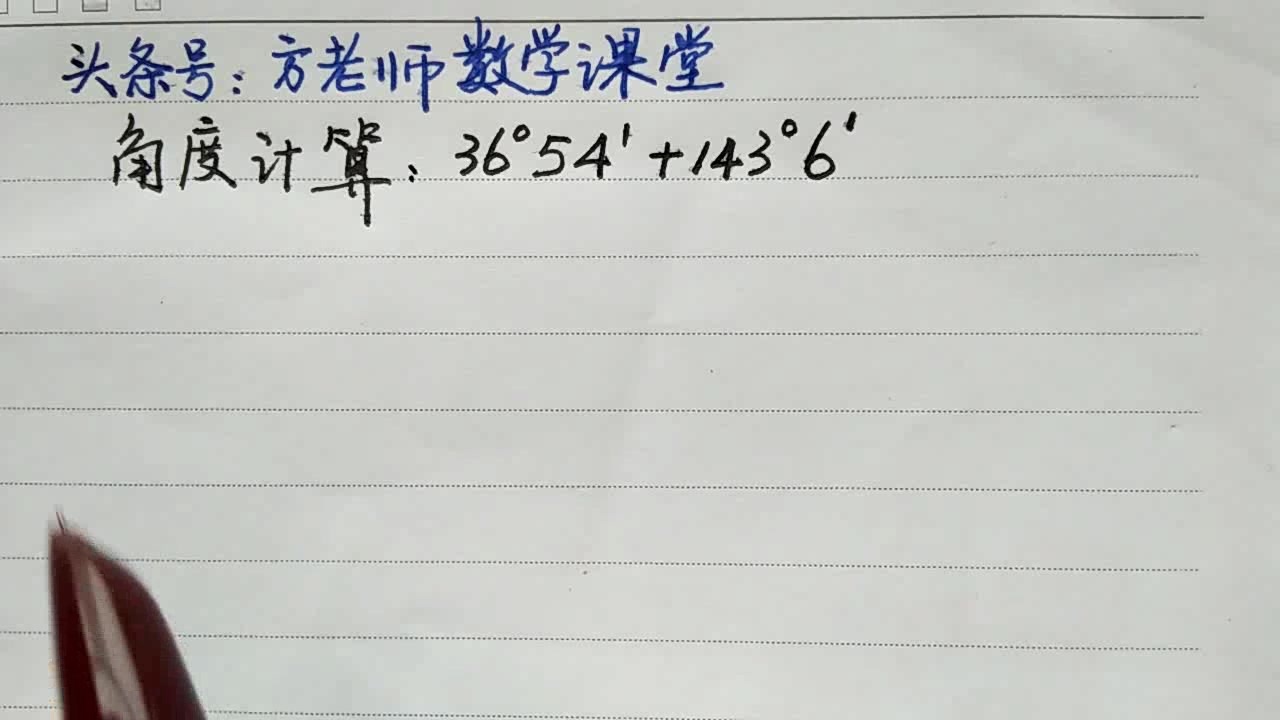 头条号:方老师数学课堂
角度计算:36°54′+143°6′